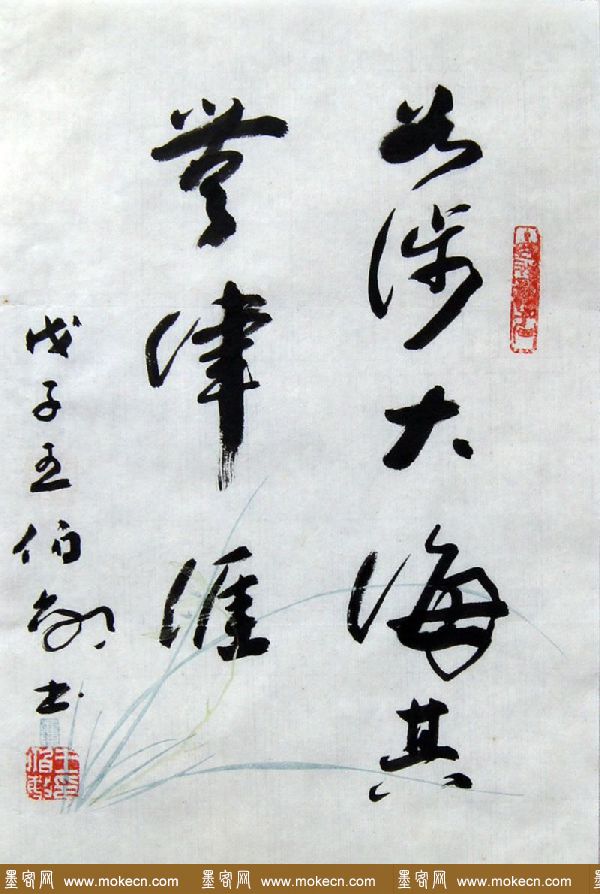 若涉大海其
無津涯
戊子王伯书
墨客网 www.mokecn.com 墨客网 www.mokecn.com 墨客网 www.mokecn.com